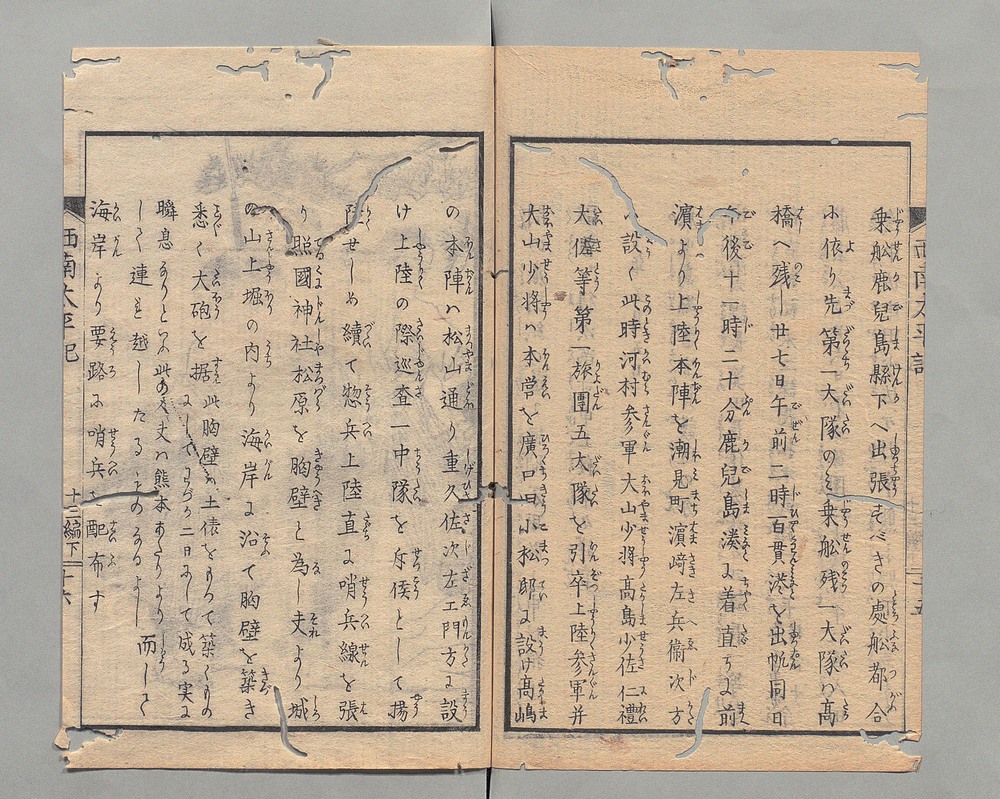 乗船鹿兒島縣下へ出張すべきの處船都合
に依り先第一大隊のミ乗船残一大隊ハ髙
橋へ残し廿七日午前二時百貫港を出帆同日
午後十一時二十分鹿兒島湊に着直ちに前
濵より上陸本陣を潮見町濵﨑左兵衞次方
に設く此時河村参軍大山少將髙島少佐仁禮
大佐等第一旅團五大隊を引卒上陸参軍并
大山少将ハ本営を廣口旦小松邸に設け髙嶋
の本陣ハ松山通り重久佐次左エ門方に設
け上陸の際巡査一中隊を斥候として揚
陸せしめ續て惣兵上陸直に哨兵線を張
り照國神社松原を胸壁と為し夫より城
の山上堀の内より海岸に沿て胸壁を築き
悉く大砲を据此胸壁ハ土俵をもつて築くもの
にしてわづか二日にして成る実に
瞬息なりと云此の丈夫ハ熊本あたりより
しく連も越したるものなるよし而して
海岸より要路に哨兵を配布す
西南太平記
十二編下
十六
西南太平記
十五